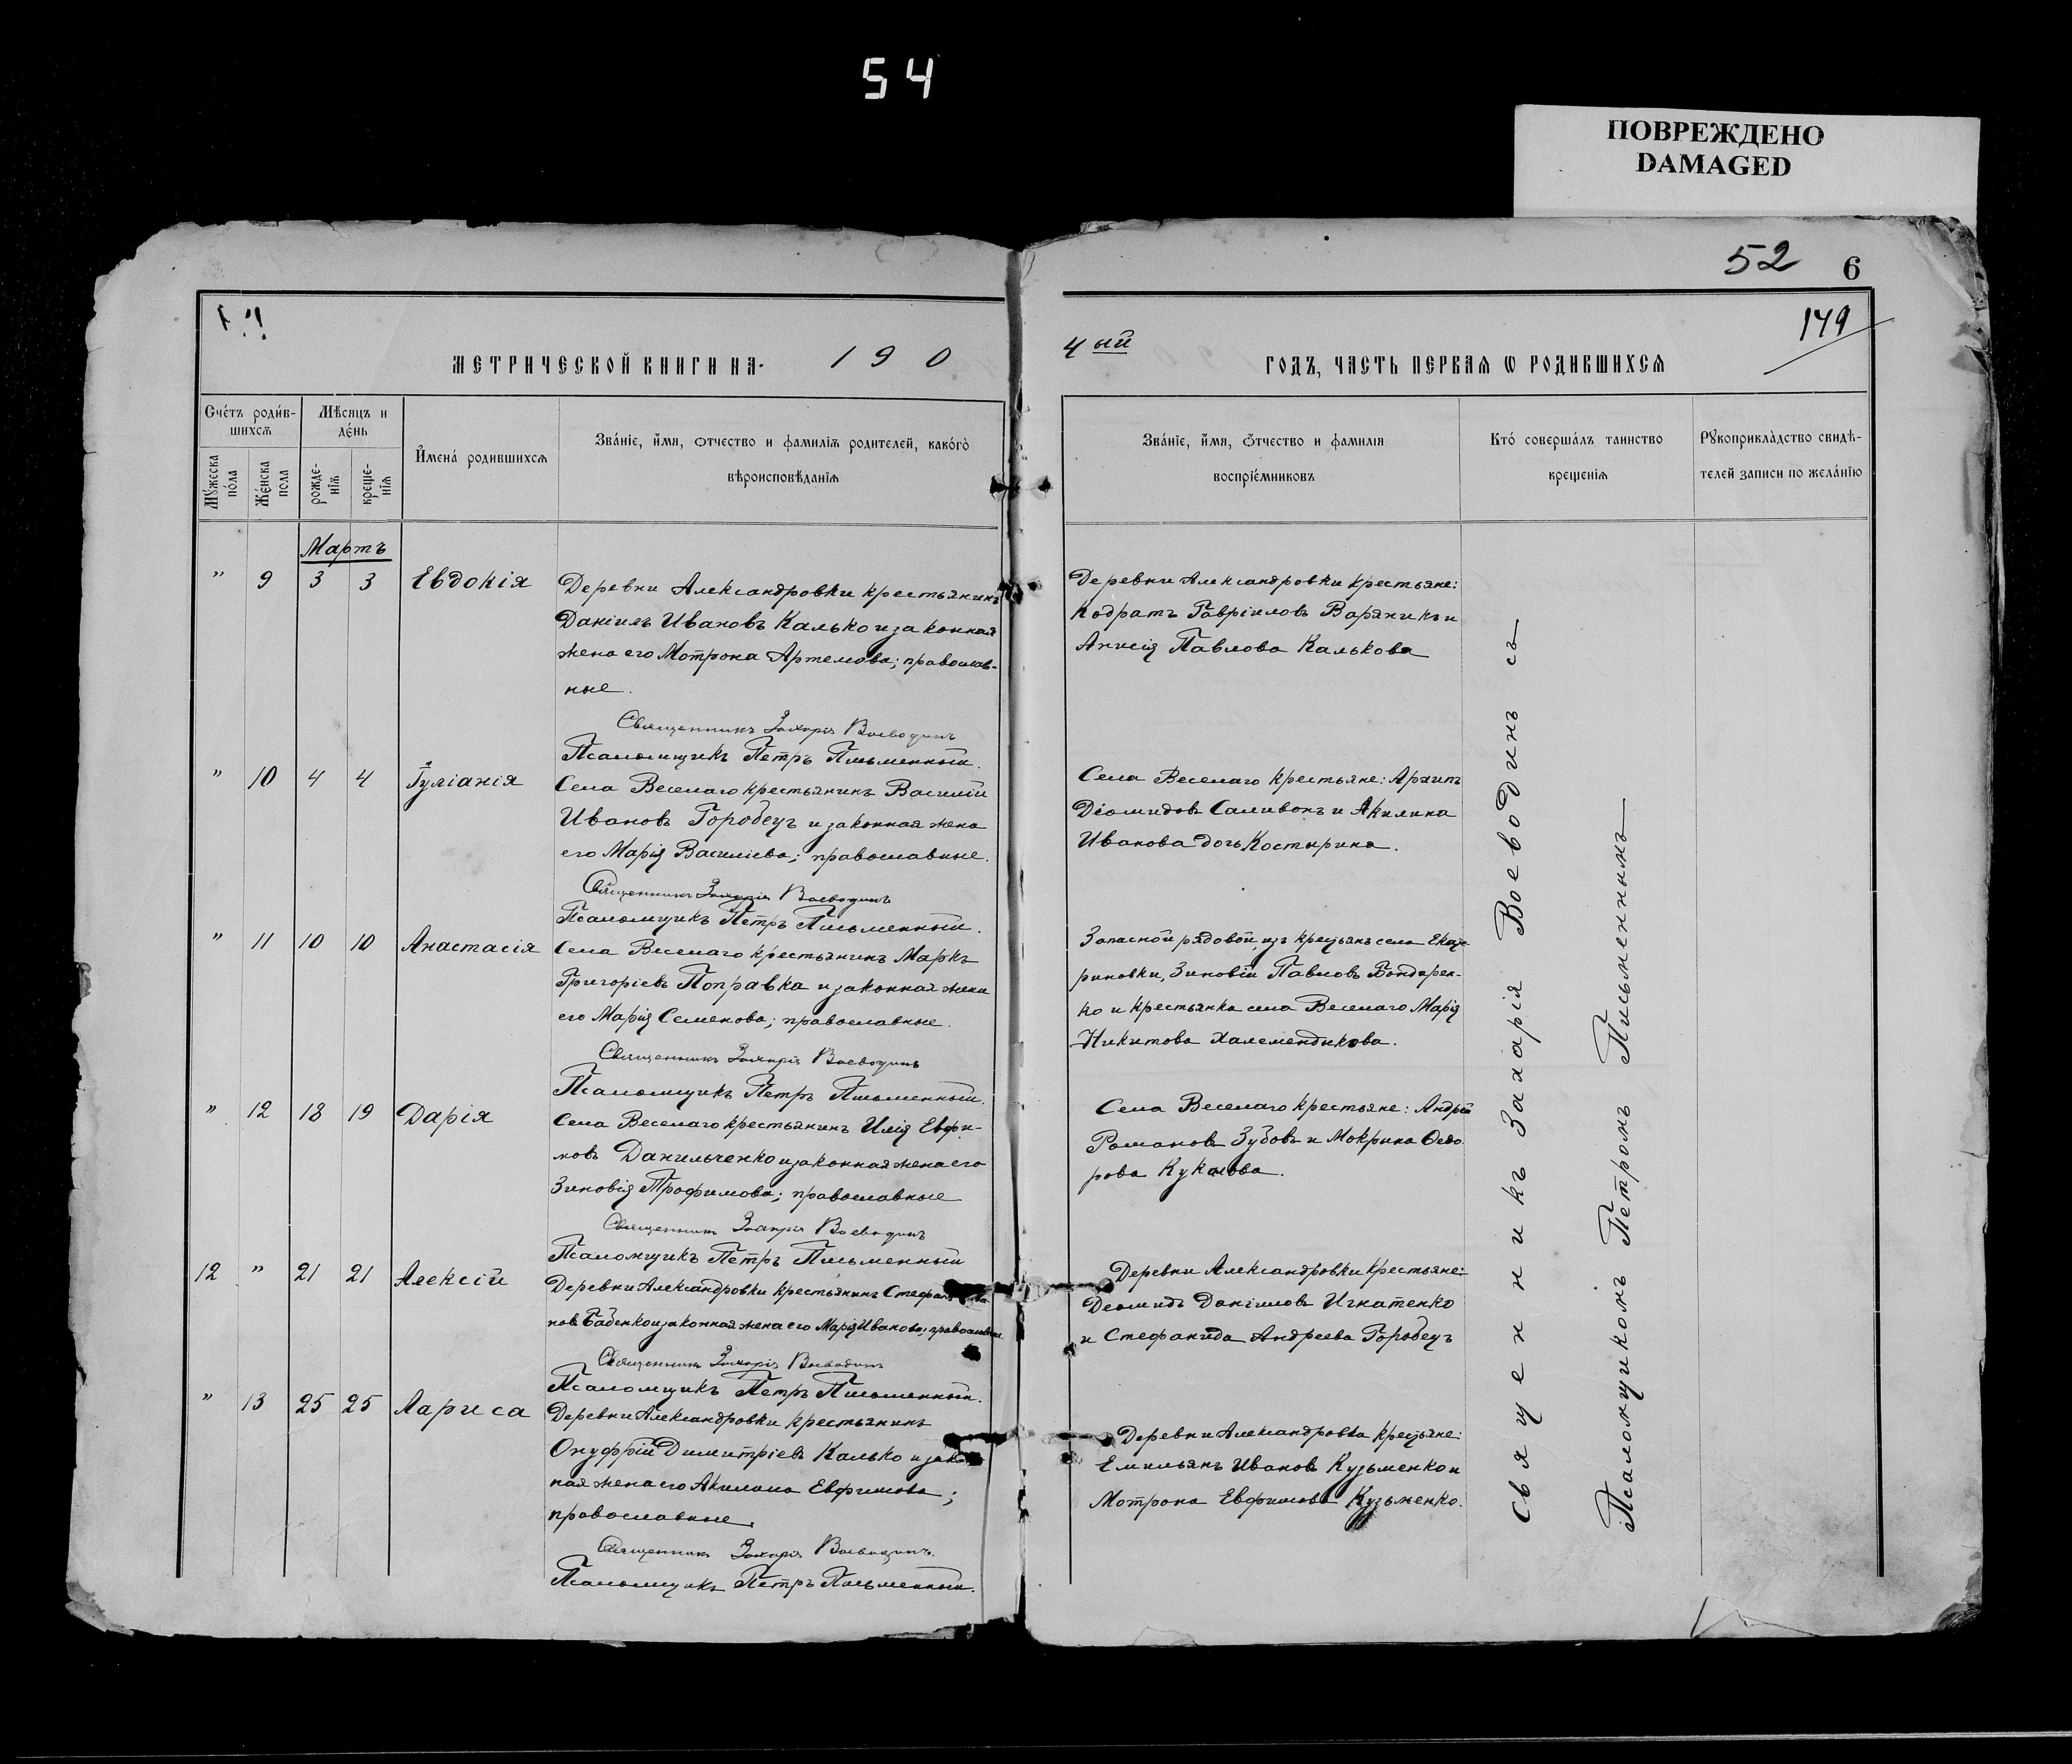 54
ПОВРЕЖДЕНО
DAMAGED
52 6
149
МЕТРИЧЕСКОЙ КНИГИ НА 190
4ый ГОДЪ, ЧАСТЬ ПЕРВАЯ Ѡ РОДИВШИХСЯ
Счетъ родив-
шихся
Мѣсяцъ и
день
Имена родившихся
Званіе, имя, отчество и фамилія родителей, какого
вѣроисповѣданія
Мужеска
пола
Женска
пола
рожде-
нія
креще-
нія
Званіе, имя, отчество и фамилія
воспріемниковъ
Кто совершалъ таинство
крещенія
Рукоприкладство свидѣ-
телей записи по желанію
Мартъ
" 9 3 3 Евдокія
Деревни Александровки крестьянинъ
Даніилъ Ивановъ Калько и законная
жена его Мотрона Артемова; православ-
ные.
Священникъ Захарія Воеводинъ
Псаломщикъ Петръ Письменный.
Деревни Александровки крестьяне:
Кодратъ Гавріиловъ Вареникъ и
Анисія Павлова Калькова
" 10 4 4 Іуліанія
Села Веселаго крестьянинъ Василій
Ивановъ Горобецъ и законная жена
его Марія Василіева; православные.
Священникъ Захарія Воеводинъ
Псаломщикъ Петръ Письменный.
Села Веселаго крестьяне: Архипъ
Діомидовъ Саливонъ и Акилина
Иванова дочь Костырина.
" 11 10 10 Анастасія
Села Веселаго крестьянинъ Маркъ
Григоріевъ Поправка и законная жена
его Марія Семенова; православные.
Священникъ Захарія Воеводинъ
Псаломщикъ Петръ Письменный.
Запасной рядовой, изъ крестьянъ села Екате
риновки, Зиновій Павловъ Бондарен-
ко и крестьянка села Веселаго Марія
Никитова Халемендикова.
" 12 18 19 Дарія
Села Веселаго крестьянинъ Илія Евфи-
мовъ Данильченко и законная жена его
Зиновія Трофимова; православные
Священникъ Захарія Воеводинъ
Псаломщикъ Петръ Письменный
Села Веселаго крестьяне: Андрей
Романовъ Зубовъ и Мокрина Ѳедо
рова Куклова.
12 " 21 21 Алексій
Деревни Александровки крестьянинъ Стефанъ
новъ Бабенко и законная жена его Марія Иванова; православные.
Священникъ Захарія Воеводинъ
Псаломщикъ Петръ Письменный.
Деревни Александровки крестьяне:
Діомидъ Даніиловъ Игнатенко
и Стефанида Андреева Горобецъ
" 13 25 25 Лариса
Деревни Александровки крестьянинъ
Онуфрій Димитріевъ Калько и закон
ная жена его Акилина Евфимова;
православные.
Священникъ Захарія Воеводинъ.
Псаломщикъ Петръ Письменный.
Деревни Александровки крестьяне:
Емильянъ Ивановъ Кузьменко и
Мотрона Евфимова Кузьменко.
Священникъ Захарія Воеводинъ съ
Псаломщикомъ Петромъ Письменнымъ